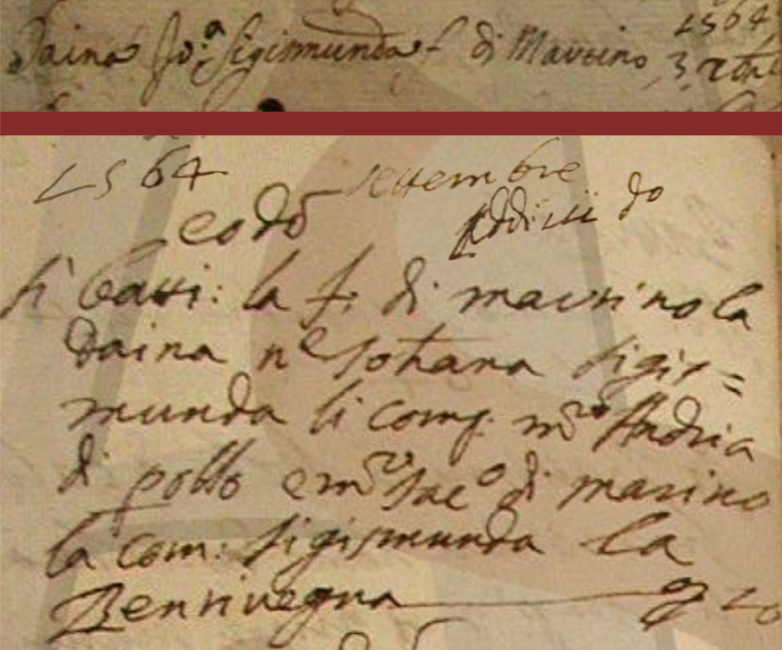 Daina Jo:a Sigismunda f di Maurino 1564
3
1564 settembre
eodo Addi iii do
si batti: la f. di maurino la
daina ne Johana sigis=
munda li comp. mro Andria
di pollo e mro Jaco di marino
la com: sigismunda la
Bentivegna